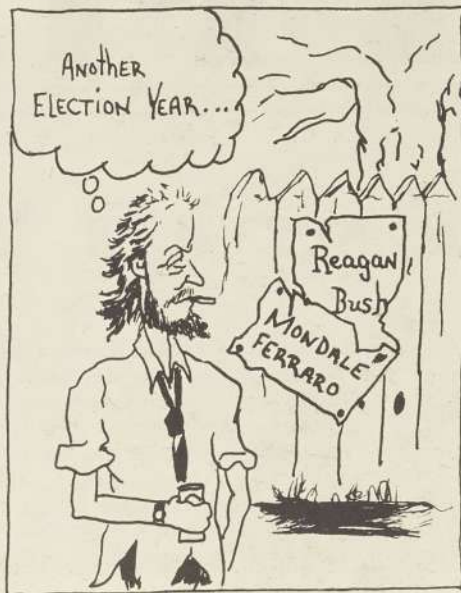 Another
Election Year...
Reagan
Bush
Mondale
Ferraro